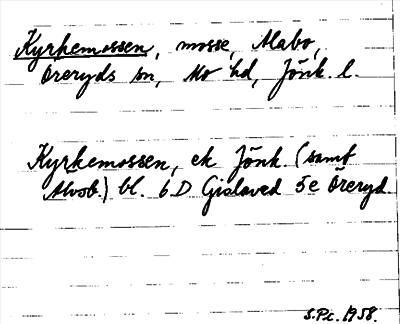 Kyrkemossen, mosse, Mabo,
Öreryds sn, Mo hd, Jönk. l.
Kyrkemossen, ek Jönk. (samt
Älvsb.) bl. 6D Gislaved 5e Öreryd
S.Pc. 1958.